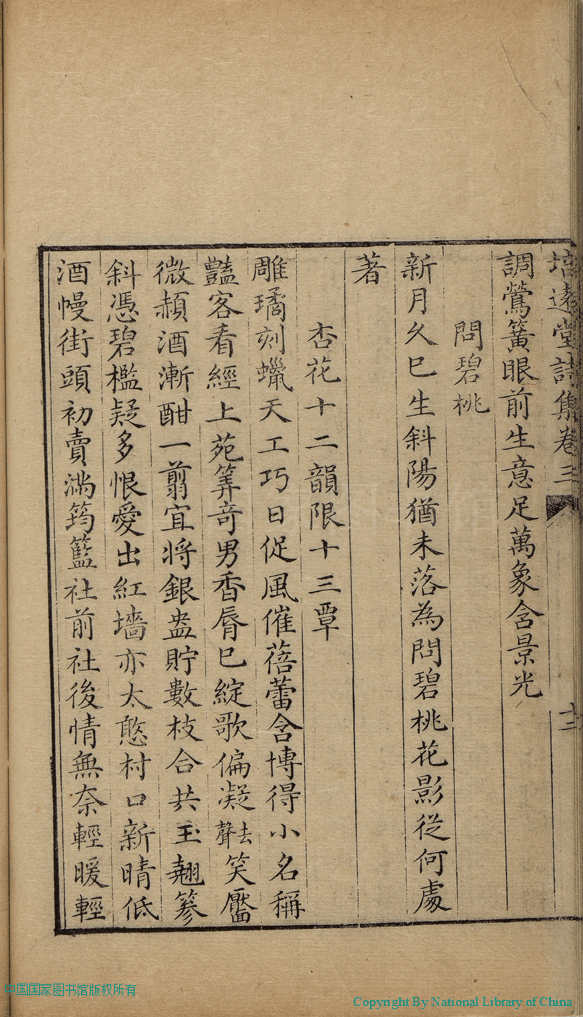 培遠堂詩集卷三
十二
調鶯簧眼前生意足萬象含景光
問碧桃
新月久巳生斜陽猶未落為問碧桃花影從何處
著
杏花十二韻限十三覃
雕璚刻蠟天工巧日促風催蓓蕾含博得小名稱
豔客看經上苑筭奇男香脣巳綻歌偏凝去聲笑靨
微頳酒漸酣一剪宜將銀盎貯數枝合共玉翹篸
斜憑碧檻疑多恨愛出紅墻亦太憨村口新晴低
酒幔街頭初賣滿筠籃社前社後情無奈輕暖輕
中国国家图书馆版权所有
Copyright By National Library of China